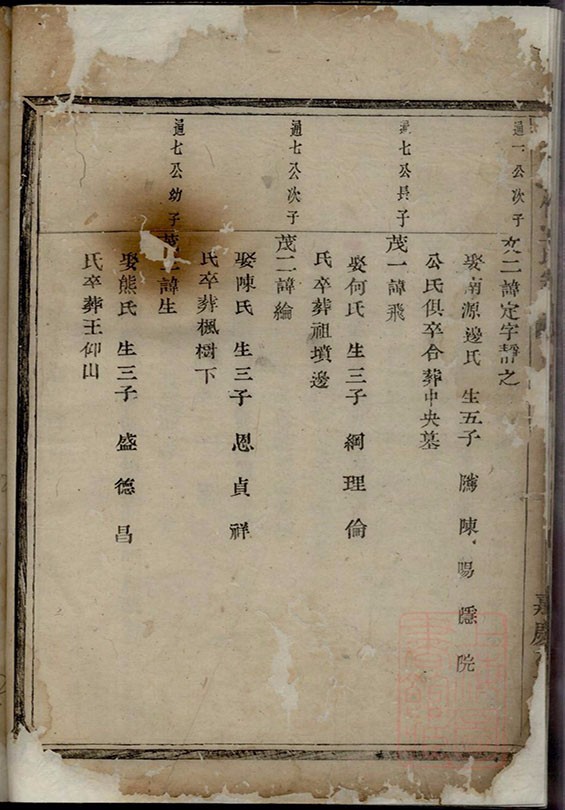 通一公次子
文二諱定字靜之
娶南源邊氏 生五子 隲陳暘隱院
公氏俱卒合葬中央墓
通七公長子
茂一諱飛
娶何氏 生三子 綱理倫
氏卒葬祖墳邊
通七公次子
茂二諱綸
娶陳氏 生三子 恩貞祥
氏卒葬楓樹下
通七公幼子
茂三諱生
娶熊氏 生三子 盛德昌
氏卒葬王仰山
嘉慶